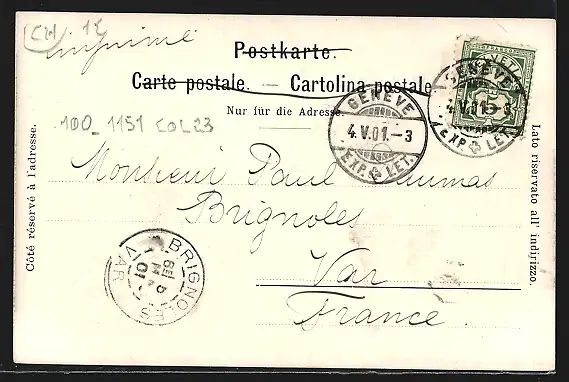 CH 12
imprimé
Postkarte.
Carte postale. — Cartolina postale
Nur für die Adresse.
100_1151 COL23
GENÈVE
4.V.01.–3
EXP. LET.
HELVETIA
FRANCO
GENÈVE
4.V.01.–3
EXP. LET.
Côté réservé à l'adresse.
Monsieur Paul Daumas
Brignoles
Var
France.
BRIGNOLES
VAR
01
Lato riservato all' indirizzo.